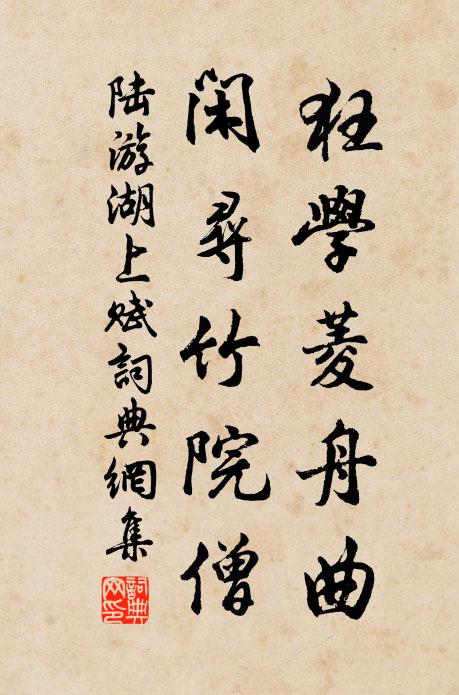 狂學菱舟曲
閑尋竹院僧
陆游湖上賦詞典網集
詞典網印